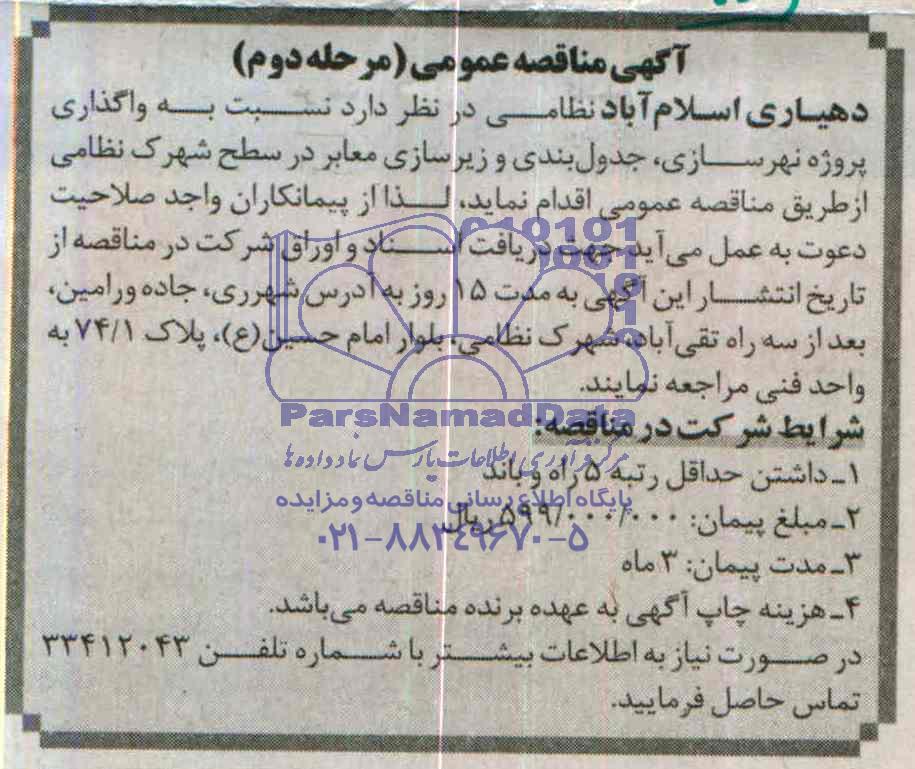 آگهی مناقصه عمومی (مرحله دوم)
دهیاری اسلام‌آباد نظامی در نظر دارد نسبت به واگذاری
پروژه نهرسازی، جدول‌بندی و زیرسازی معابر در سطح شهرک نظامی
ازطریق مناقصه عمومی اقدام نماید، لذا از پیمانکاران واجد صلاحیت
دعوت به عمل می‌آید جهت دریافت اسناد و اوراق شرکت در مناقصه از
تاریخ انتشار این آگهی به مدت ۱۵ روز به آدرس شهرری، جاده ورامین،
بعد از سه راه تقی‌آباد، شهرک نظامی، بلوار امام حسین(ع)، پلاک ۷۴/۱ به
واحد فنی مراجعه نمایند.
ParsNamadData
شرایط شرکت در مناقصه:
مرکز فرآوری اطلاعات پارس نماد داده ها
۱ـ داشتن حداقل رتبه ۵ راه و باند
پایگاه اطلاع رسانی مناقصه و مزایده
۲ـ مبلغ پیمان: ۵۹۹/۰۰۰/۰۰۰ ریال
۰۲۱-۸۸۳۴۹۶۷۰-۵
۳ـ مدت پیمان: ۳ ماه
۴ـ هزینه چاپ آگهی به عهده برنده مناقصه می‌باشد.
در صورت نیاز به اطلاعات بیشتر با شماره تلفن ۳۳۴۱۲۰۴۳
تماس حاصل فرمایید.